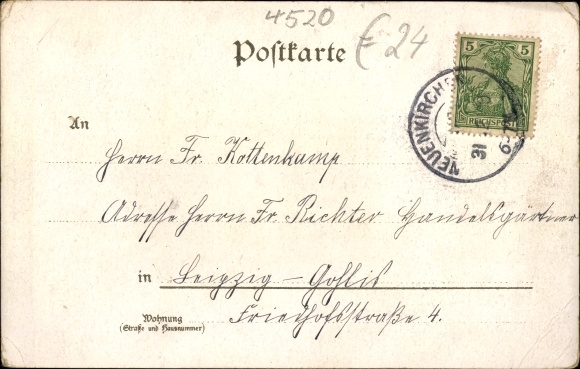 4520
Postkarte
€ 24
5 5
REICHSPOST
NEUENKIRCHEN
31
An
Herrn Fr. Kottenkamp
Adresse Herrn Fr. Richter Handelsgärtner
in Leipzig – Gohlis
Wohnung
(Straße und Hausnummer)
Friedhofsstraße 4.